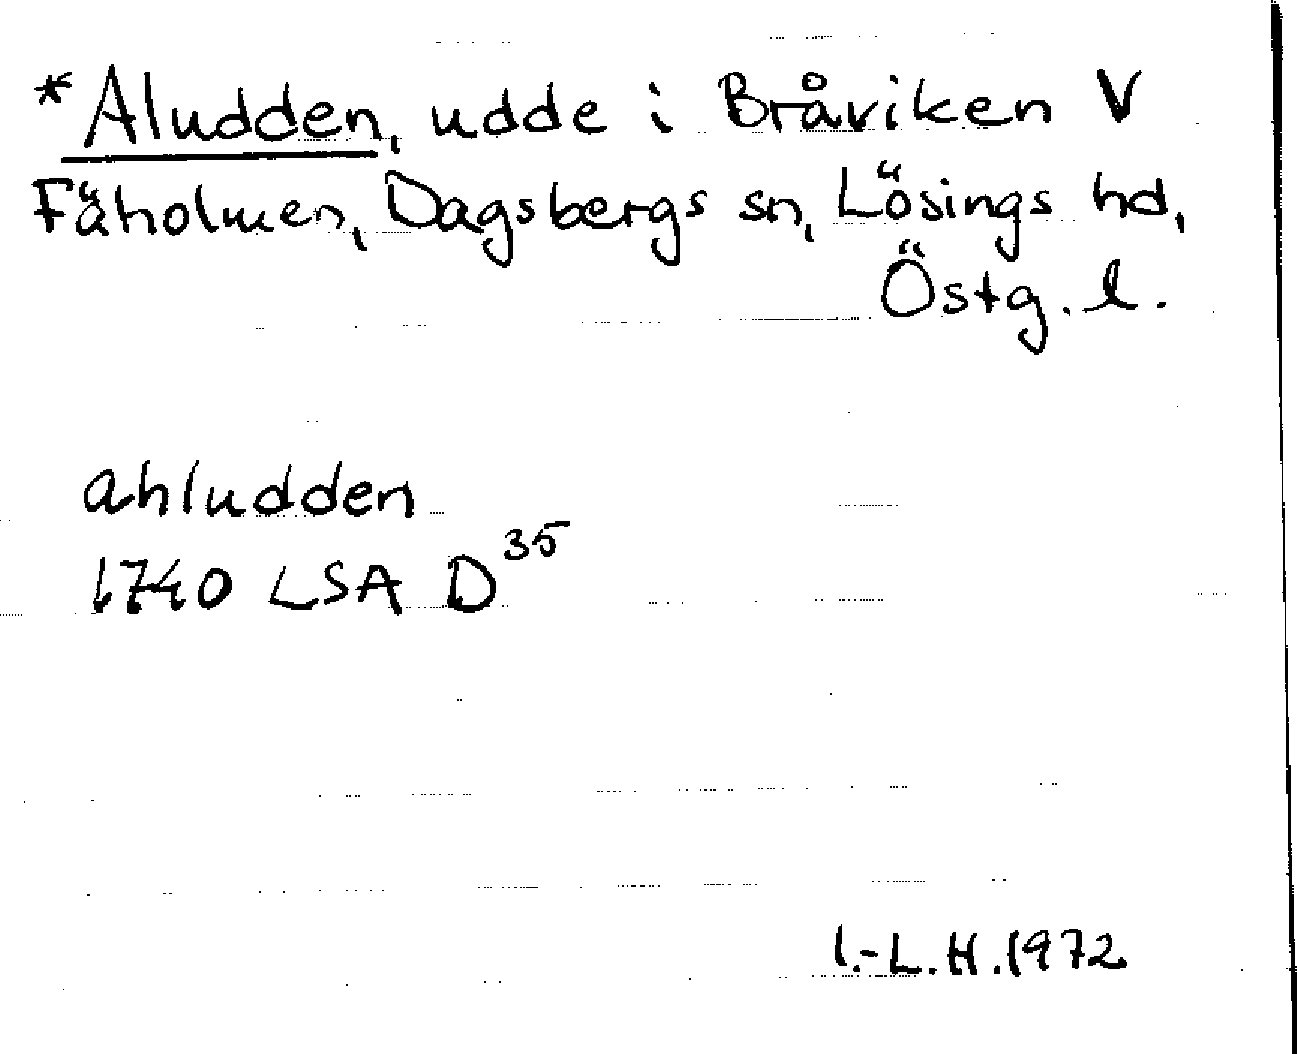 *Aludden, udde i Bråviken V
Fäholmen, Dagsbergs sn, Lösings hd,
Östg. l.
ahludden
1740 LSA D³⁵
I.-L.H.1972